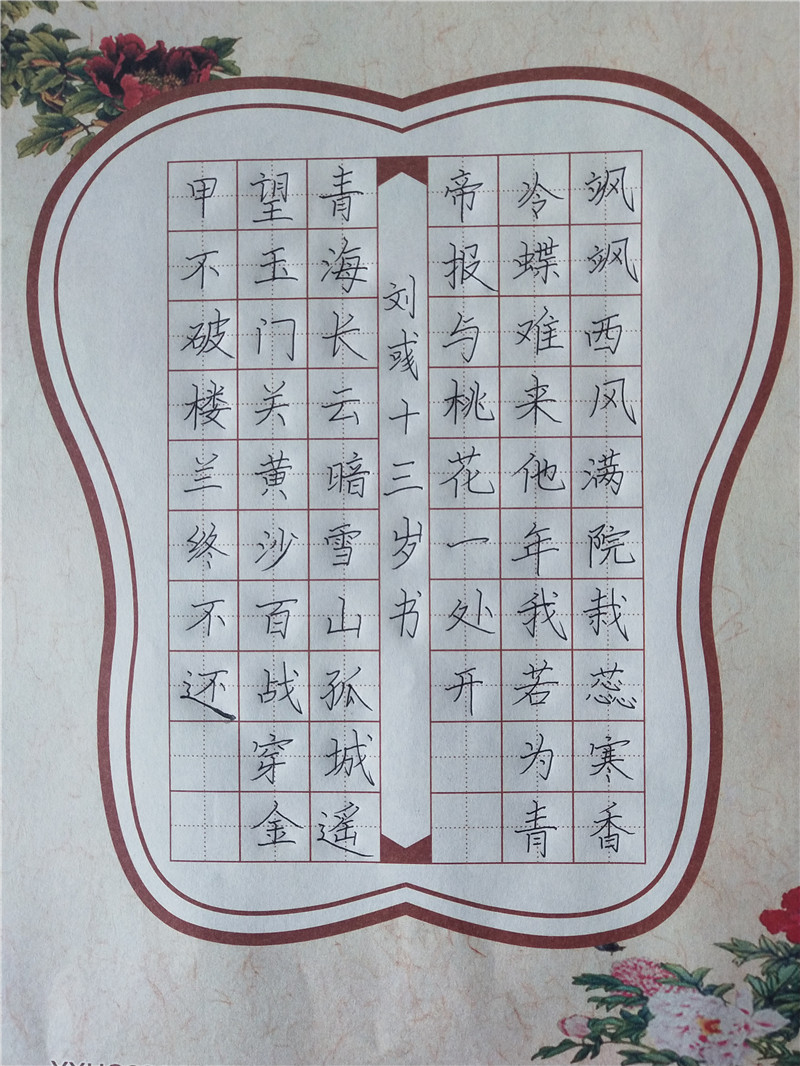 飒飒西风满院栽蕊寒香
冷蝶难来他年我若为青
帝报与桃花一处开
刘彧十三岁书
青海长云暗雪山孤城遥
望玉门关黄沙百战穿金
甲不破楼兰终不还